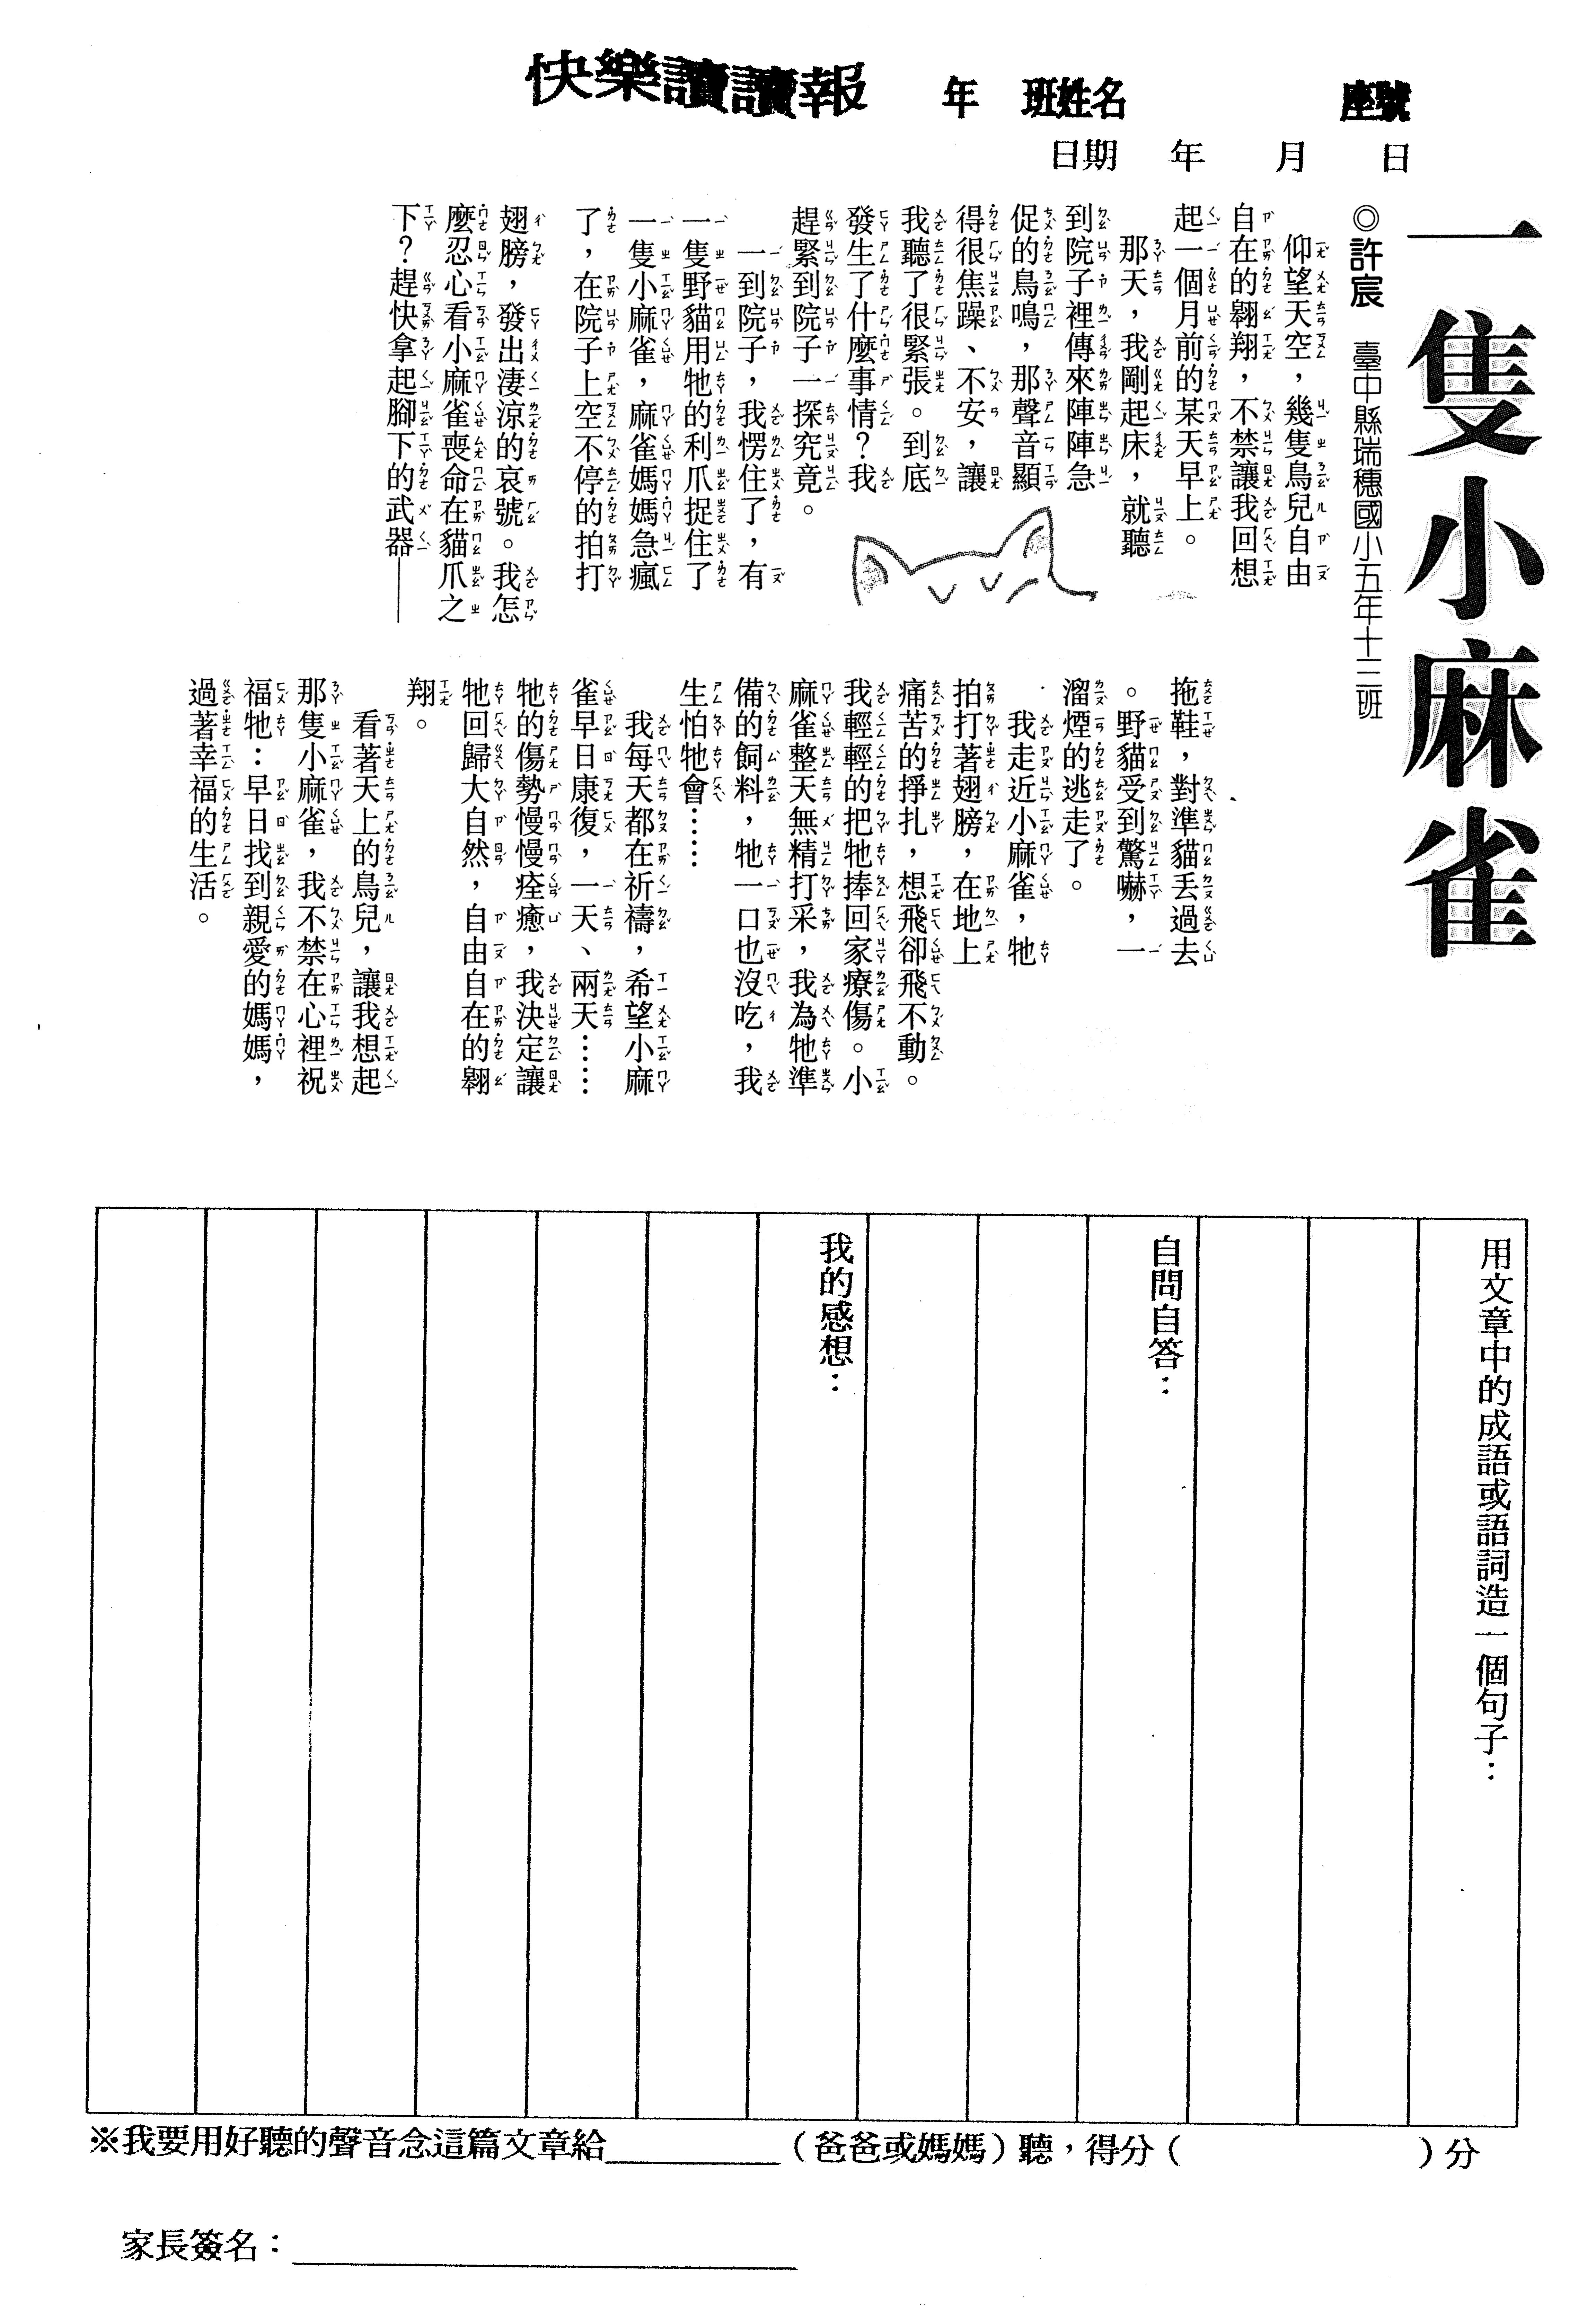 快樂讀讀報 年 班姓名 座號
日期 年 月 日
一隻小麻雀
◎許宸 臺中縣瑞穗國小五年十三班
仰望天空，幾隻鳥兒自由
自在的翱翔，不禁讓我回想
起一個月前的某天早上。
那天，我剛起床，就聽
到院子裡傳來陣陣急
促的鳥鳴，那聲音顯
得很焦躁、不安，讓
我聽了很緊張。到底
發生了什麼事情？我
趕緊到院子一探究竟。
一到院子，我愣住了，有
一隻野貓用牠的利爪捉住了
一隻小麻雀，麻雀媽媽急瘋
了，在院子上空不停的拍打
翅膀，發出淒涼的哀號。我怎
麼忍心看小麻雀喪命在貓爪之
下？趕快拿起腳下的武器——
拖鞋，對準貓丟過去
。野貓受到驚嚇，一
溜煙的逃走了。
我走近小麻雀，牠
拍打著翅膀，在地上
痛苦的掙扎，想飛卻飛不動。
我輕輕的把牠捧回家療傷。小
麻雀整天無精打采，我為牠準
備的飼料，牠一口也沒吃，我
生怕牠會……
我每天都在祈禱，希望小麻
雀早日康復，一天、兩天……
牠的傷勢慢慢痊癒，我決定讓
牠回歸大自然，自由自在的翱
翔。
看著天上的鳥兒，讓我想起
那隻小麻雀，我不禁在心裡祝
福牠：早日找到親愛的媽媽，
過著幸福的生活。
用文章中的成語或語詞造一個句子：
自問自答：
我的感想：
※我要用好聽的聲音念這篇文章給__________（爸爸或媽媽）聽，得分（ ）分
家長簽名：______________________________